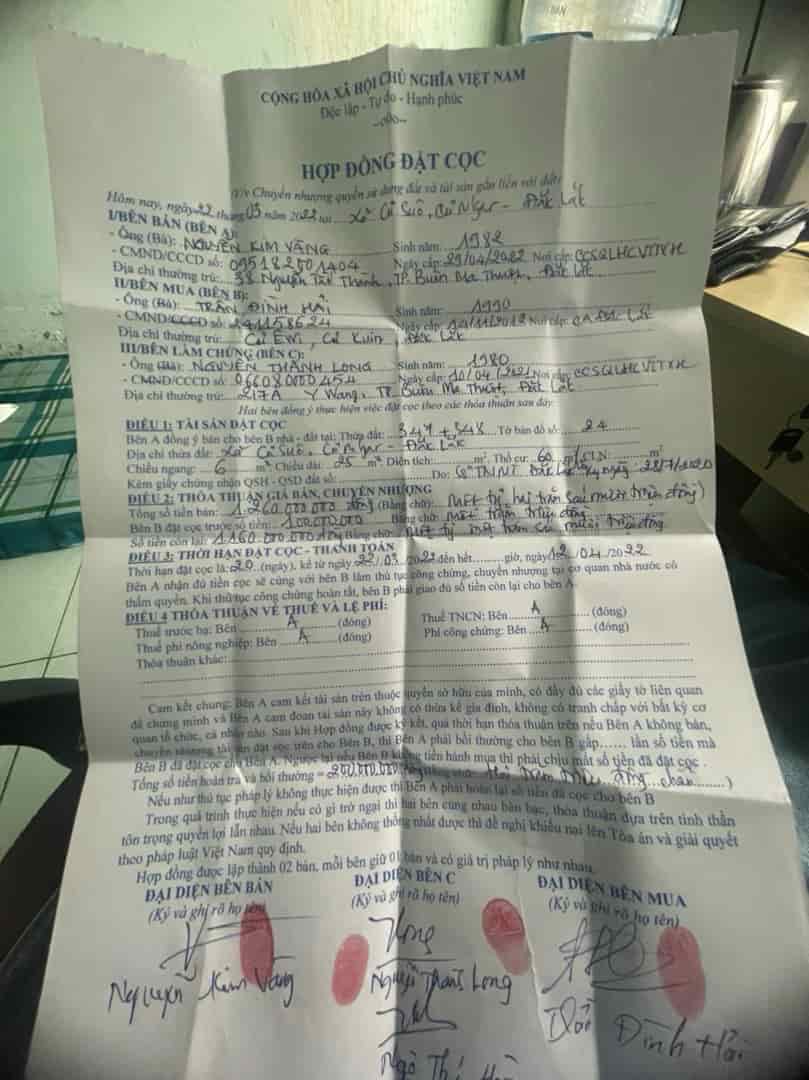 CỘNG HÒA XÃ HỘI CHỦ NGHĨA VIỆT NAM
Độc lập - Tự do - Hạnh phúc
HỢP ĐỒNG ĐẶT CỌC
(V/v Chuyển nhượng quyền sử dụng đất và tài sản gắn liền với đất)
Hôm nay, ngày 22 tháng 03 năm 2022 tại Xã Cư Suê, Cư Mgar - Đắk Lắk
I/BÊN BÁN (BÊN A):
- Ông (Bà): NGUYỄN KIM VÀNG Sinh năm: 1982
- CMND/CCCD số: Ngày cấp: 29/04/2022 Nơi cấp: CCSQLHCVTTXH
Địa chỉ thường trú: 38 Nguyễn Tất Thành, TP. Buôn Ma Thuột, Đắk Lắk
II/BÊN MUA (BÊN B):
- Ông (Bà): TRẦN ĐÌNH HẢI Sinh năm: 1990
- CMND/CCCD số: 241158624 Ngày cấp: Nơi cấp: CA Đắk Lắk
Địa chỉ thường trú: Cư Êwi, Cư Kuin, Đắk Lắk
III/BÊN LÀM CHỨNG (BÊN C):
- Ông (Bà): NGUYỄN THÀNH LONG Sinh năm: 1980
- CMND/CCCD số: 066080000454 Ngày cấp: 10/04/2021 Nơi cấp: CCSQLHCVTTXH
Địa chỉ thường trú: 217A Y Wang, TP. Buôn Ma Thuột, Đắk Lắk
Hai bên đồng ý thực hiện việc đặt cọc theo các thỏa thuận sau đây:
ĐIỀU 1: TÀI SẢN ĐẶT CỌC
Bên A đồng ý bán cho bên B nhà - đất tại: Thửa đất: 347 + 348 Tờ bản đồ số: 24
Địa chỉ thửa đất: Xã Cư Suê, Cư Mgar - Đắk Lắk
Chiều ngang: 6 m² Chiều dài: 25 m² Diện tích: m². Thổ cư: 60 m² CLN: m²
Kèm giấy chứng nhận QSH - QSD đất số: Do: Sở TNMT Đắk Lắk Ký ngày: 28/7/2020
ĐIỀU 2: THỎA THUẬN GIÁ BÁN, CHUYỂN NHƯỢNG
Tổng số tiền bán: 1.260.000.000 đồng (Bằng chữ): Một tỷ hai trăm sáu mươi triệu đồng)
Bên B đặt cọc trước số tiền: 100.000.000 Bằng chữ: Một trăm triệu đồng
Số tiền còn lại: 1.160.000.000 đồng Bằng chữ: Một tỷ một trăm sáu mươi triệu đồng
ĐIỀU 3: THỜI HẠN ĐẶT CỌC - THANH TOÁN
Thời hạn đặt cọc là: 20 (ngày), kể từ ngày 22/03/2022 đến hết giờ, ngày 12/04/2022
Bên A nhận đủ tiền cọc sẽ cùng với bên B làm thủ tục công chứng, chuyển nhượng tại cơ quan nhà nước có
thẩm quyền. Khi thủ tục công chứng hoàn tất, bên B phải giao đủ số tiền còn lại cho bên A.
ĐIỀU 4 THỎA THUẬN VỀ THUẾ VÀ LỆ PHÍ:
Thuế trước bạ: Bên A (đóng) Thuế TNCN: Bên A (đóng)
Thuế phi nông nghiệp: Bên A (đóng) Phí công chứng: Bên A (đóng)
Thỏa thuận khác:
Cam kết chung: Bên A cam kết tài sản trên thuộc quyền sở hữu của mình, có đầy đủ các giấy tờ liên quan
để chứng minh và Bên A cam đoan tài sản này không có thừa kế gia đình, không có tranh chấp với bất kỳ cơ
quan tổ chức, cá nhân nào. Sau khi Hợp đồng được ký kết, quá thời hạn thỏa thuận trên nếu Bên A không bán,
chuyển nhượng tài sản đặt cọc trên cho Bên B, thì Bên A phải bồi thường cho bên B gấp...... lần số tiền mà
Bên B đã đặt cọc cho Bên A. Ngược lại nếu Bên B không tiến hành mua thì phải chịu mất số tiền đã đặt cọc.
Tổng số tiền hoàn trả và bồi thường = 200.000.000 Hai trăm triệu đồng chẵn)
Nếu như thủ tục pháp lý không thực hiện được thì Bên A phải hoàn lại số tiền đã cọc cho bên B
Trong quá trình thực hiện nếu có gì trở ngại thì hai bên cùng nhau bàn bạc, thỏa thuận dựa trên tinh thần
tôn trọng quyền lợi lẫn nhau. Nếu hai bên không thống nhất được thì đề nghị khiếu nại lên Tòa án và giải quyết
theo pháp luật Việt Nam quy định.
Hợp đồng được lập thành 02 bản, mỗi bên giữ 01 bản và có giá trị pháp lý như nhau.
ĐẠI DIỆN BÊN BÁN ĐẠI DIỆN BÊN C ĐẠI DIỆN BÊN MUA
(Ký và ghi rõ họ tên) (Ký và ghi rõ họ tên) (Ký và ghi rõ họ tên)
Nguyễn Kim Vàng Nguyễn Thành Long Đình Hải
Ngô Thị